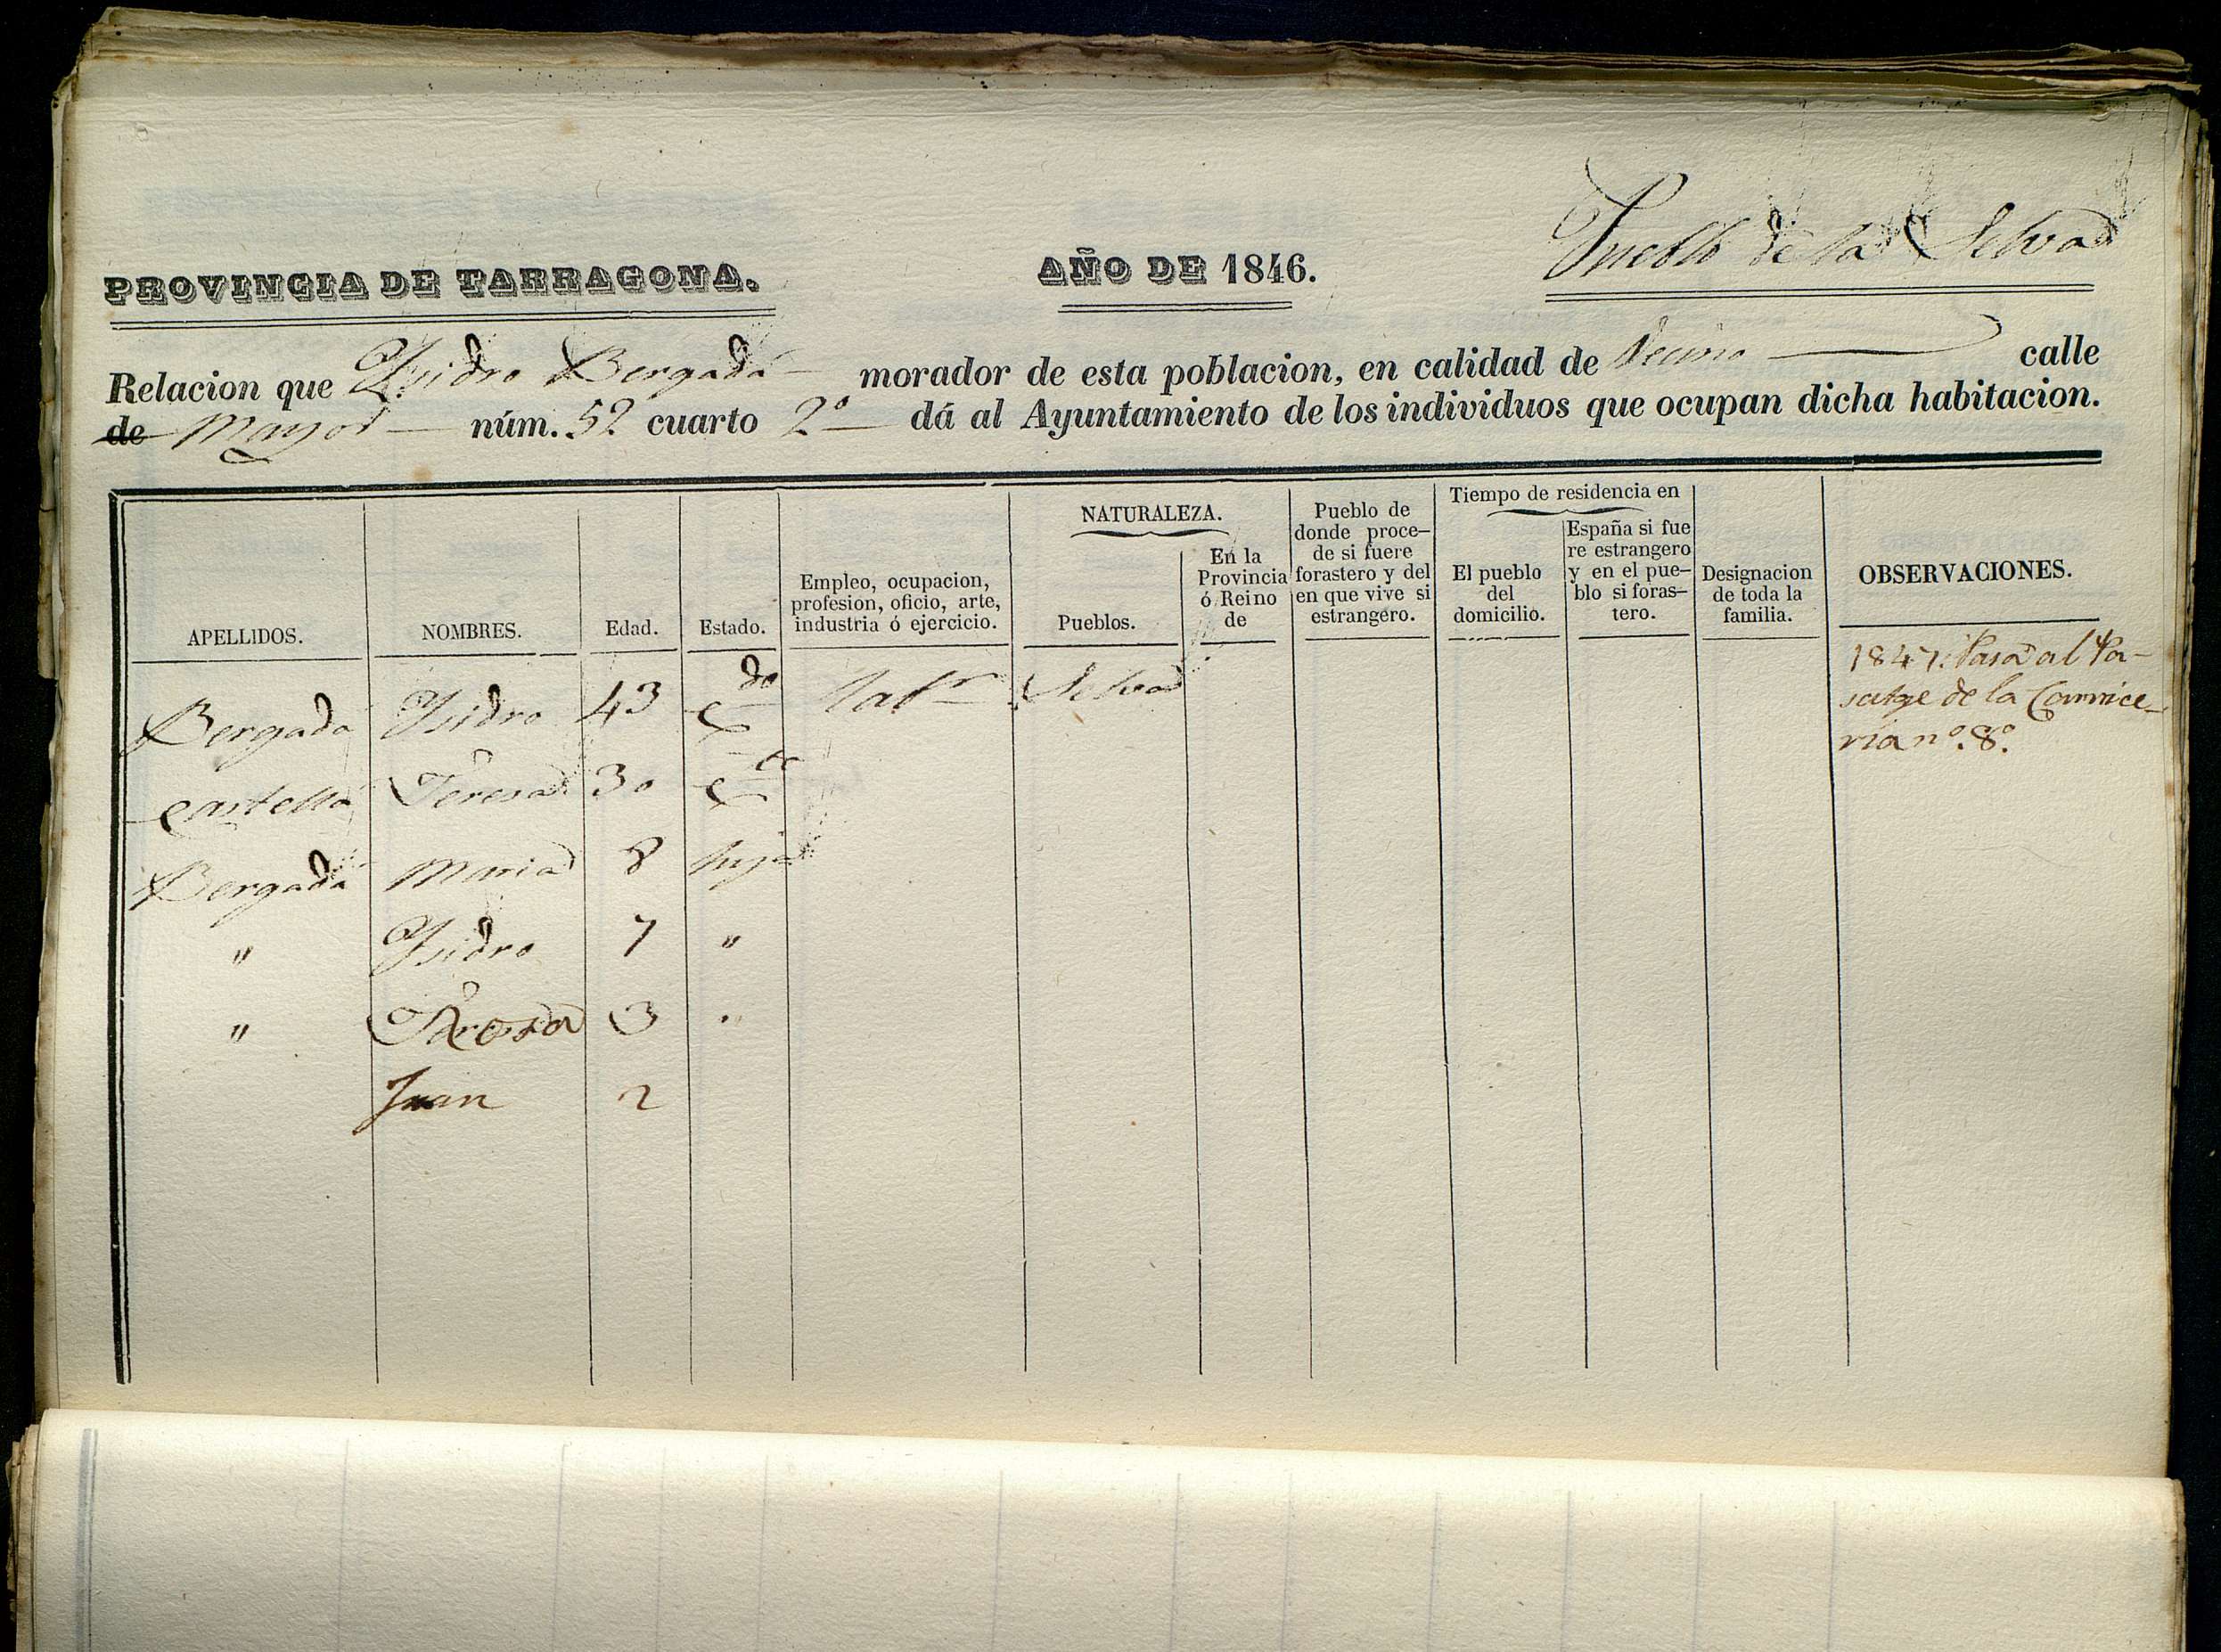 PROVINCIA DE TARRAGONA. AÑO DE 1846. Pueblo de la Selva
Relacion que Ysidro Bergadá morador de esta poblacion, en calidad de Vecino calle
de Mayor núm. 52 cuarto 2º dá al Ayuntamiento de los individuos que ocupan dicha habitacion.
APELLIDOS.
NOMBRES.
Edad.
Estado.
Empleo, ocupacion,
profesion, oficio, arte,
industria ó ejercicio.
NATURALEZA.
Pueblos.
En la
Provincia
ó Reino
de
Pueblo de
donde proce-
de si fuere
forastero y del
en que vive si
estrangero.
Tiempo de residencia en
El pueblo
del
domicilio.
España si fue
re estrangero
y en el pue-
blo si foras-
tero.
Designacion
de toda la
familia.
OBSERVACIONES.
Bergadá Ysidro 43 Cdo Labr Selva
1847. Pasa al Pa-
satge de la Carnice-
ria nº. 8º.
Castellá Teresa 30 Cda
Bergadá Maria 8 hija
" Ysidro 7 "
" Rosa 3 "
Juan 2